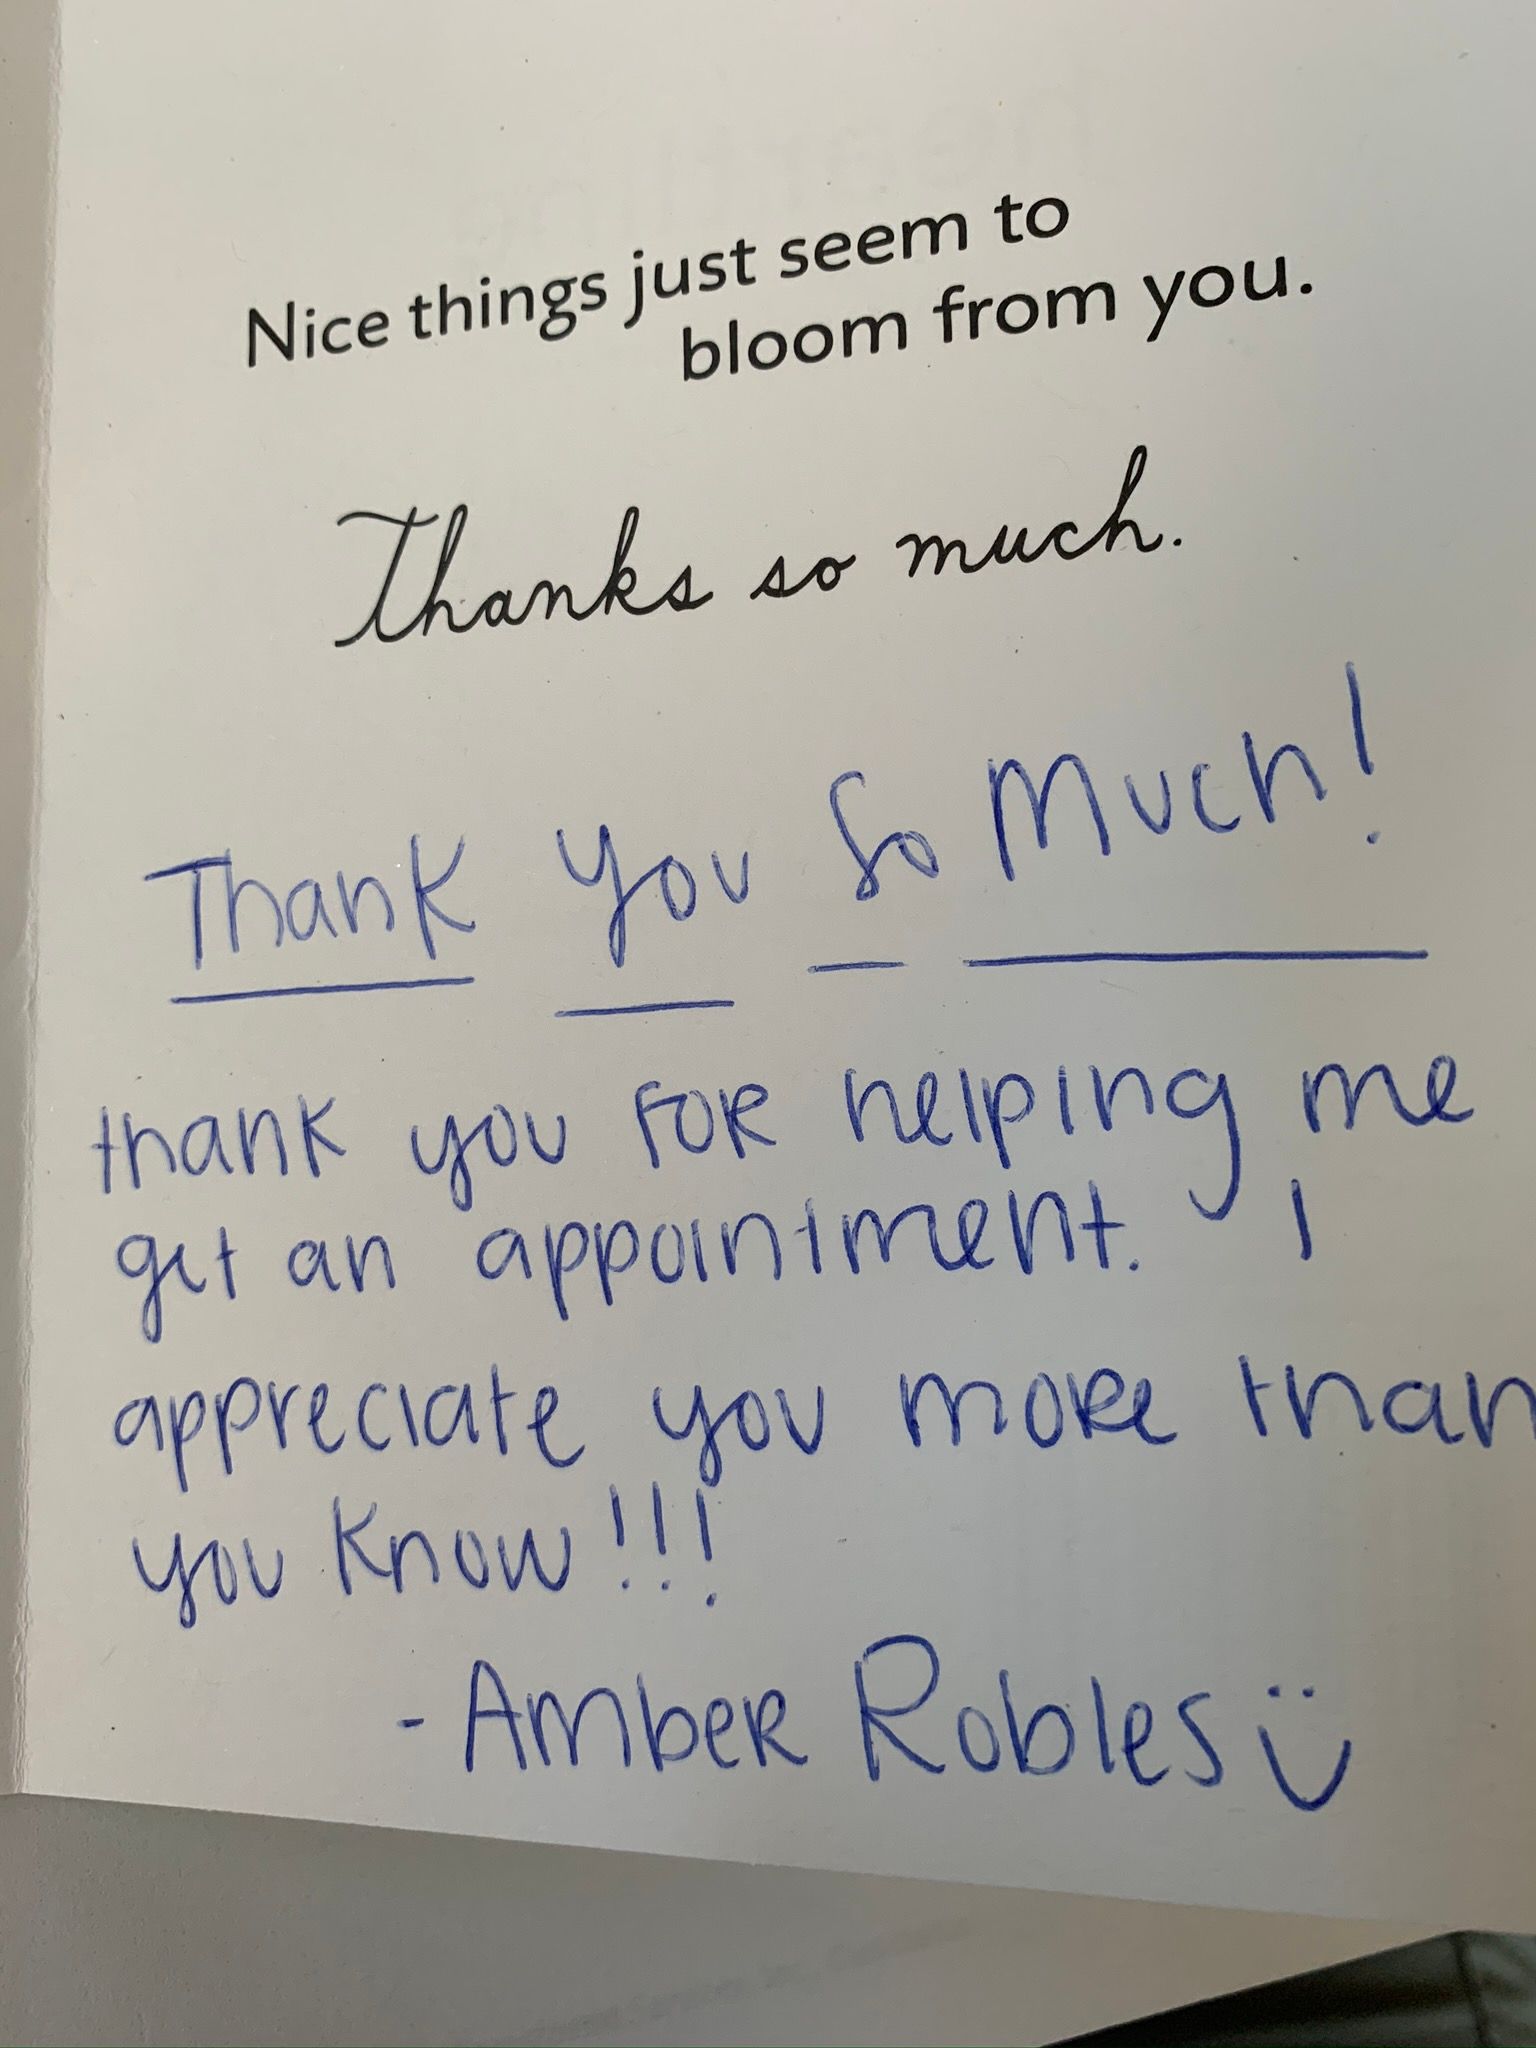 Nice things just seem to
bloom from you.
Thanks so much.
Thank You So Much!
thank you FOR helping me
get an appointment. I
appreciate you more than
you know!!!
- Amber Robles